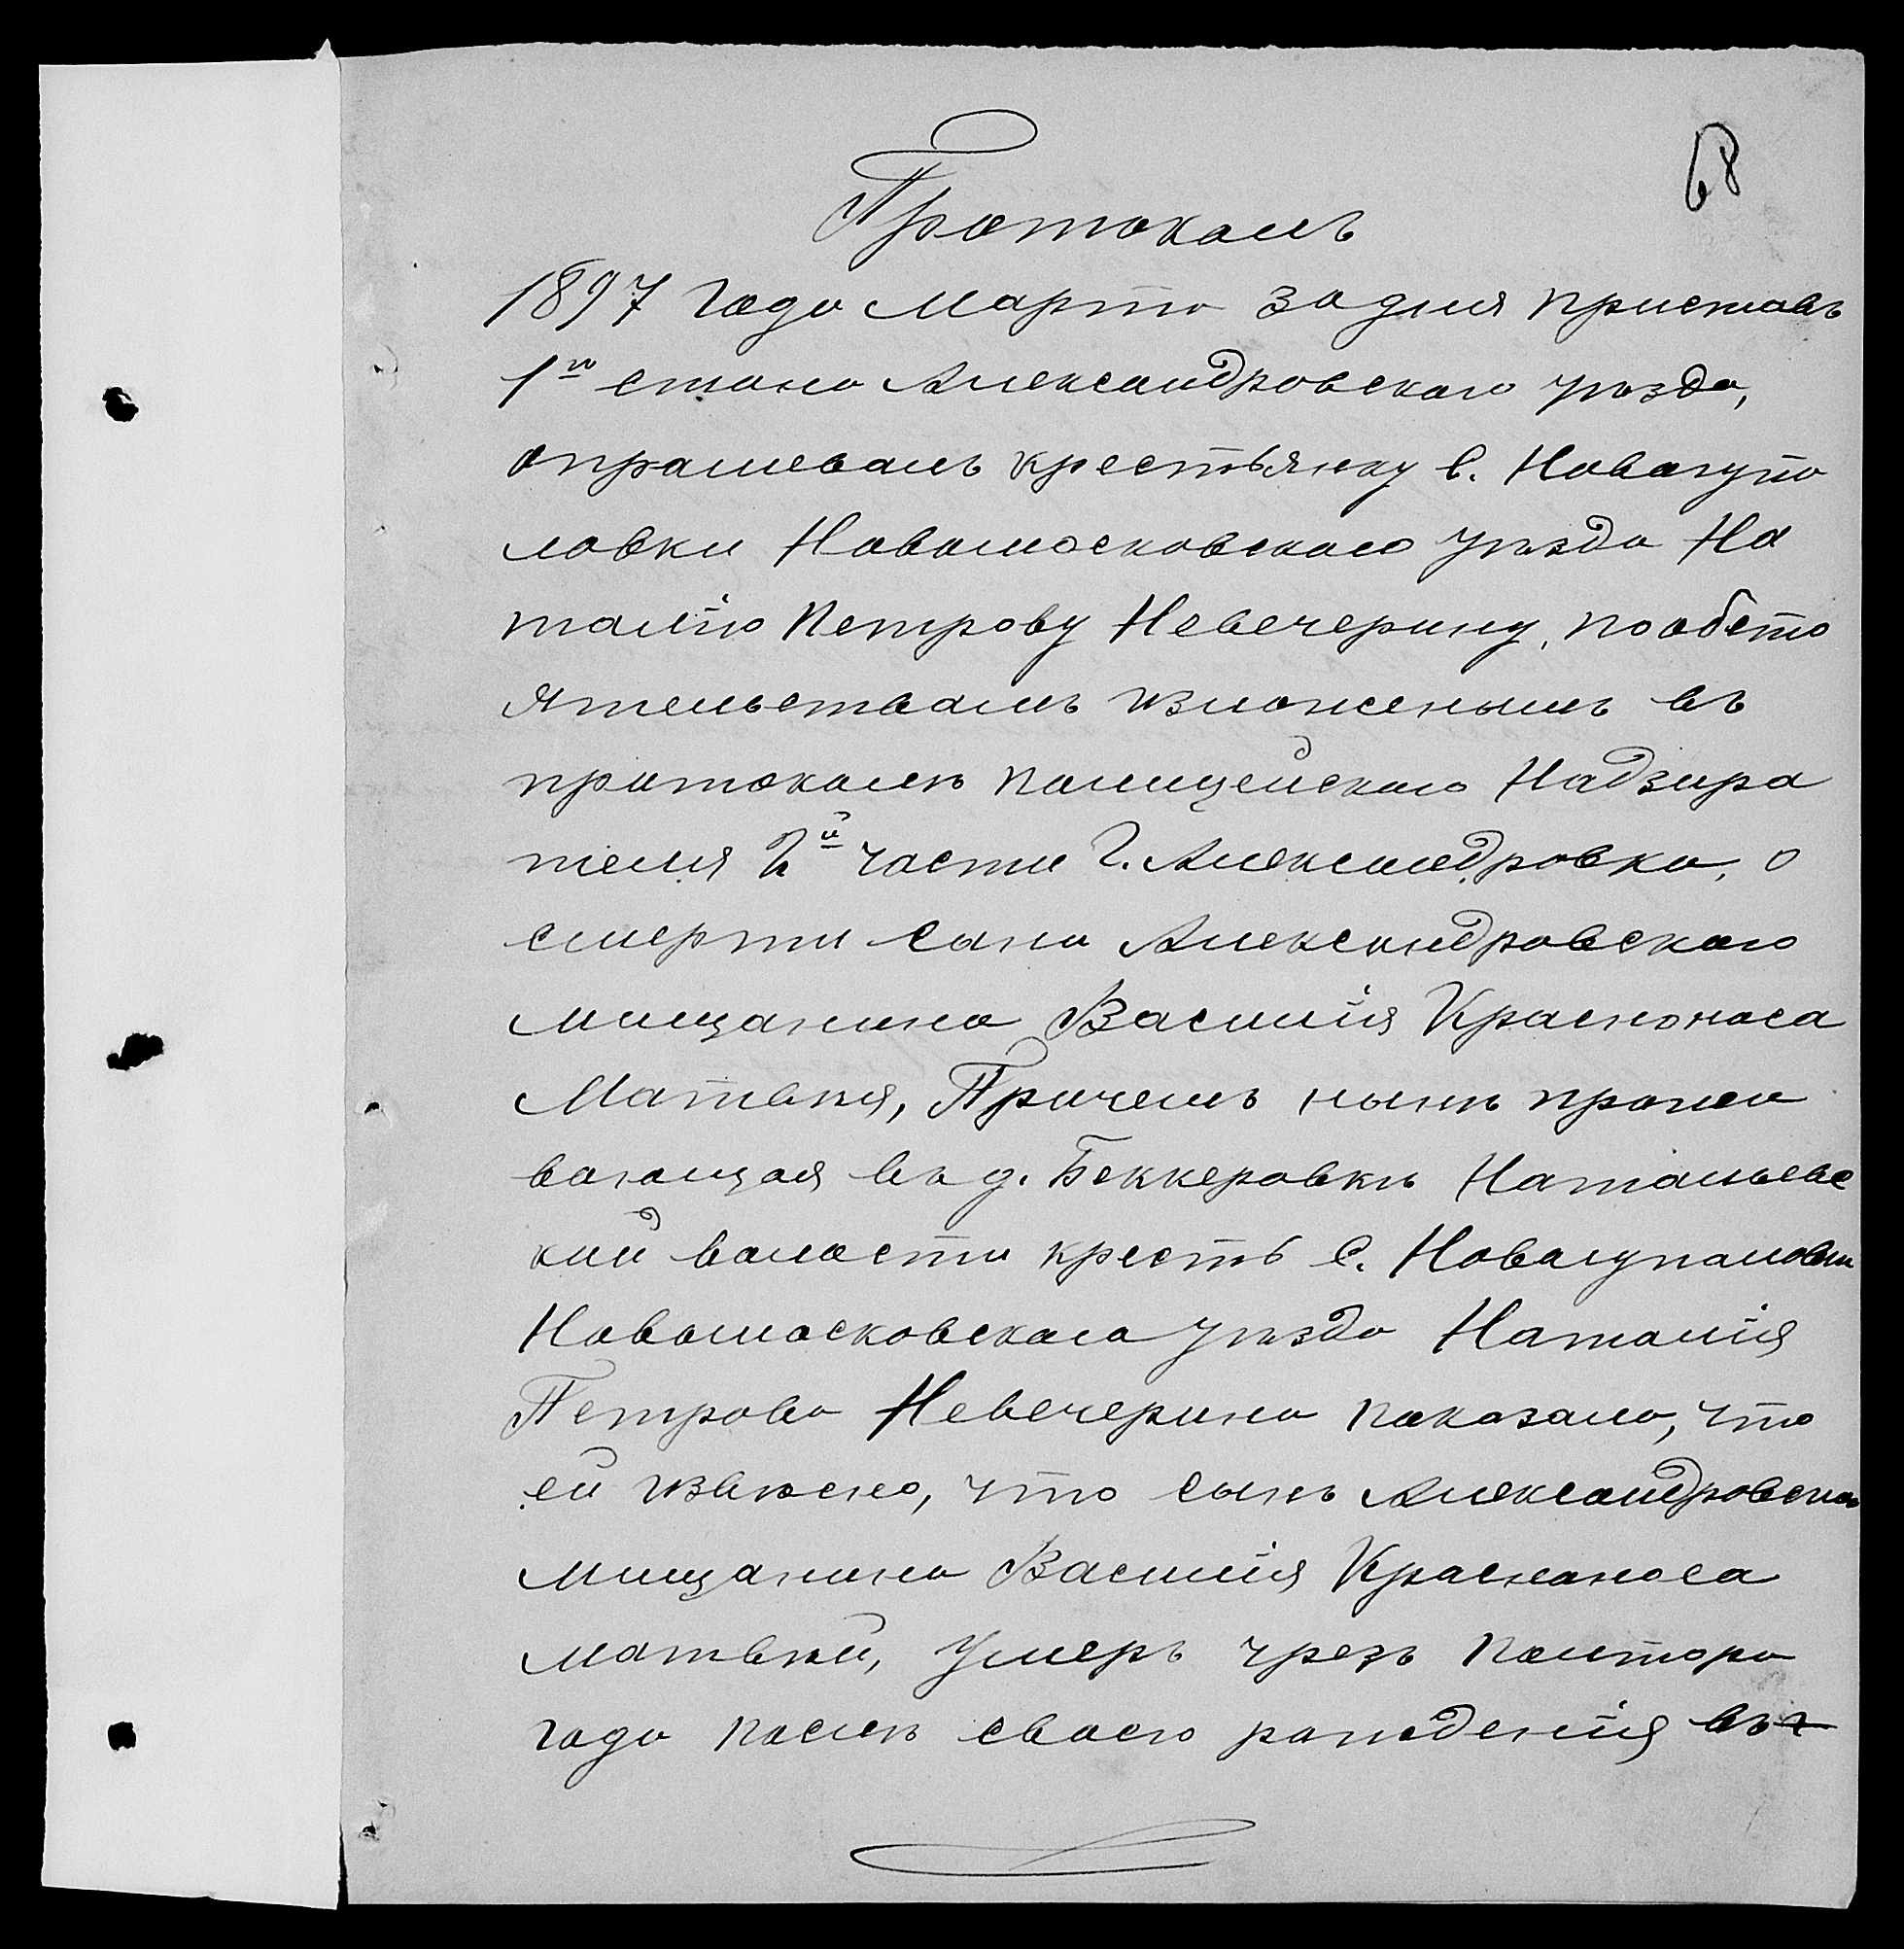 68
Протоколъ
1897 года Марта 30 дня Приставъ
1го стана Александровскаго уѣзда,
опрашевалъ крестьянку с. Новогупа
ловки Новомосковскаго уѣзда На
талію Петрову Невечерину, по обсто
ятельствамъ изложенымъ въ
протоколѣ полицейскаго Надзира
теля 2й части г. Александровка, о
смерти сына Александровскаго
мищанина Василія Красноноса
Матвѣя, Причемъ нынѣ прожи
вающая въ д. Беккеровкѣ Натальевс
кой волости крестьь с. Новогупаловки
Новомосковскаго уѣзда Наталія
Петрова Невечерина показала, что
ей извѣсно, что сынъ Александровскаго
мищанина Василія Красноноса
Матвѣй, умеръ чрезъ полтора
года послѣ своего рождения въ